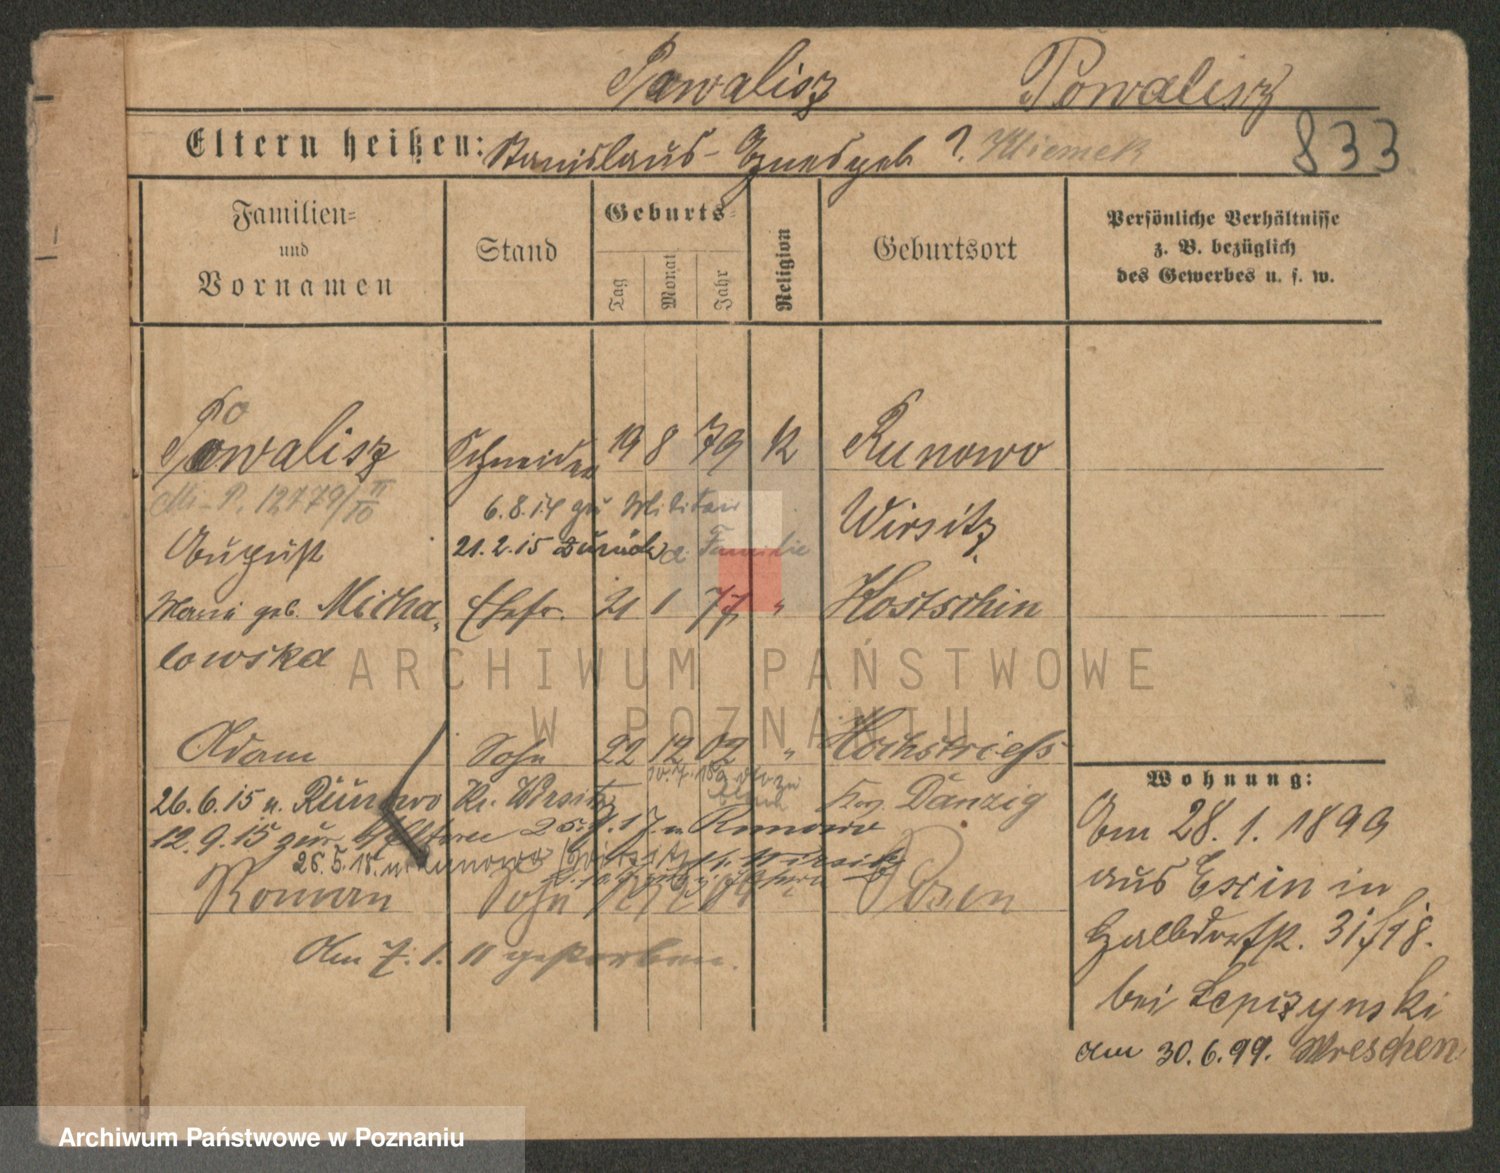 Pawalisz Powalisz
Eltern heißen: Stanislaus - Agnes geb ?. Kliemek
833
Familien-
und
Vornamen
Stand
Geburts-
Tag Monat Jahr
Religion
Geburtsort
Persönliche Verhältnisse
z. B. bezüglich
des Gewerbes u. s. w.
Po
Powalisz Schneider 19 8 79 K Runowo
6.8.14 zu Militär Wirsitz
August 21.2.15 zurück a. Familie
Maria geb. Micha- Ehefr. 21 1 77 " Kostschin
lowska
Adam Sohn 22 12 02 " Hochstriess
26.6.15 n. Runowo Kr. Wirsitz Krs. Danzig
12.9.15 zur Eltern 25.9.17 n Runowo
26.5.18. n Runowo Wirsitz
Roman Sohn Posen
Am 7. 1. 11 gestorben.
Wohnung:
Am 28. 1. 1899
aus Exin in
Halbdorfstr. 31/18.
bei Lepczynski
am 30.6.99. Wreschen
ARCHIWUM PAŃSTWOWE
W POZNANIU
Archiwum Państwowe w Poznaniu